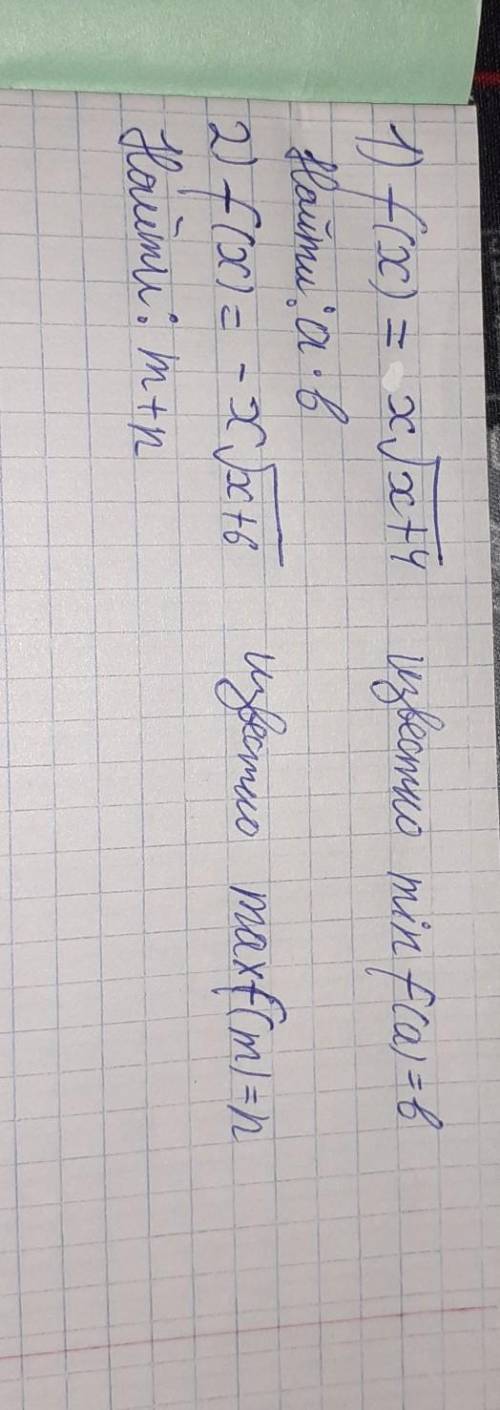 1) f(x) = x√x+4 известно min f(a) = b
Найти: a · b
2) f(x) = - x√x+6 известно max f(m) = n
Найти: m + n